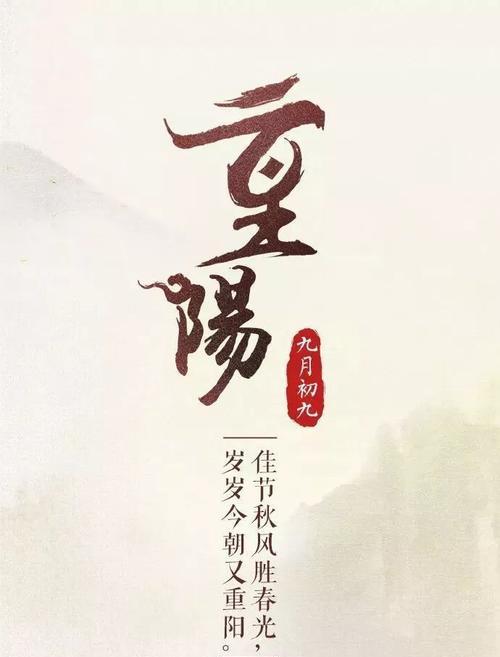 重陽
九月初九
佳节秋风胜春光，
岁岁今朝又重阳。